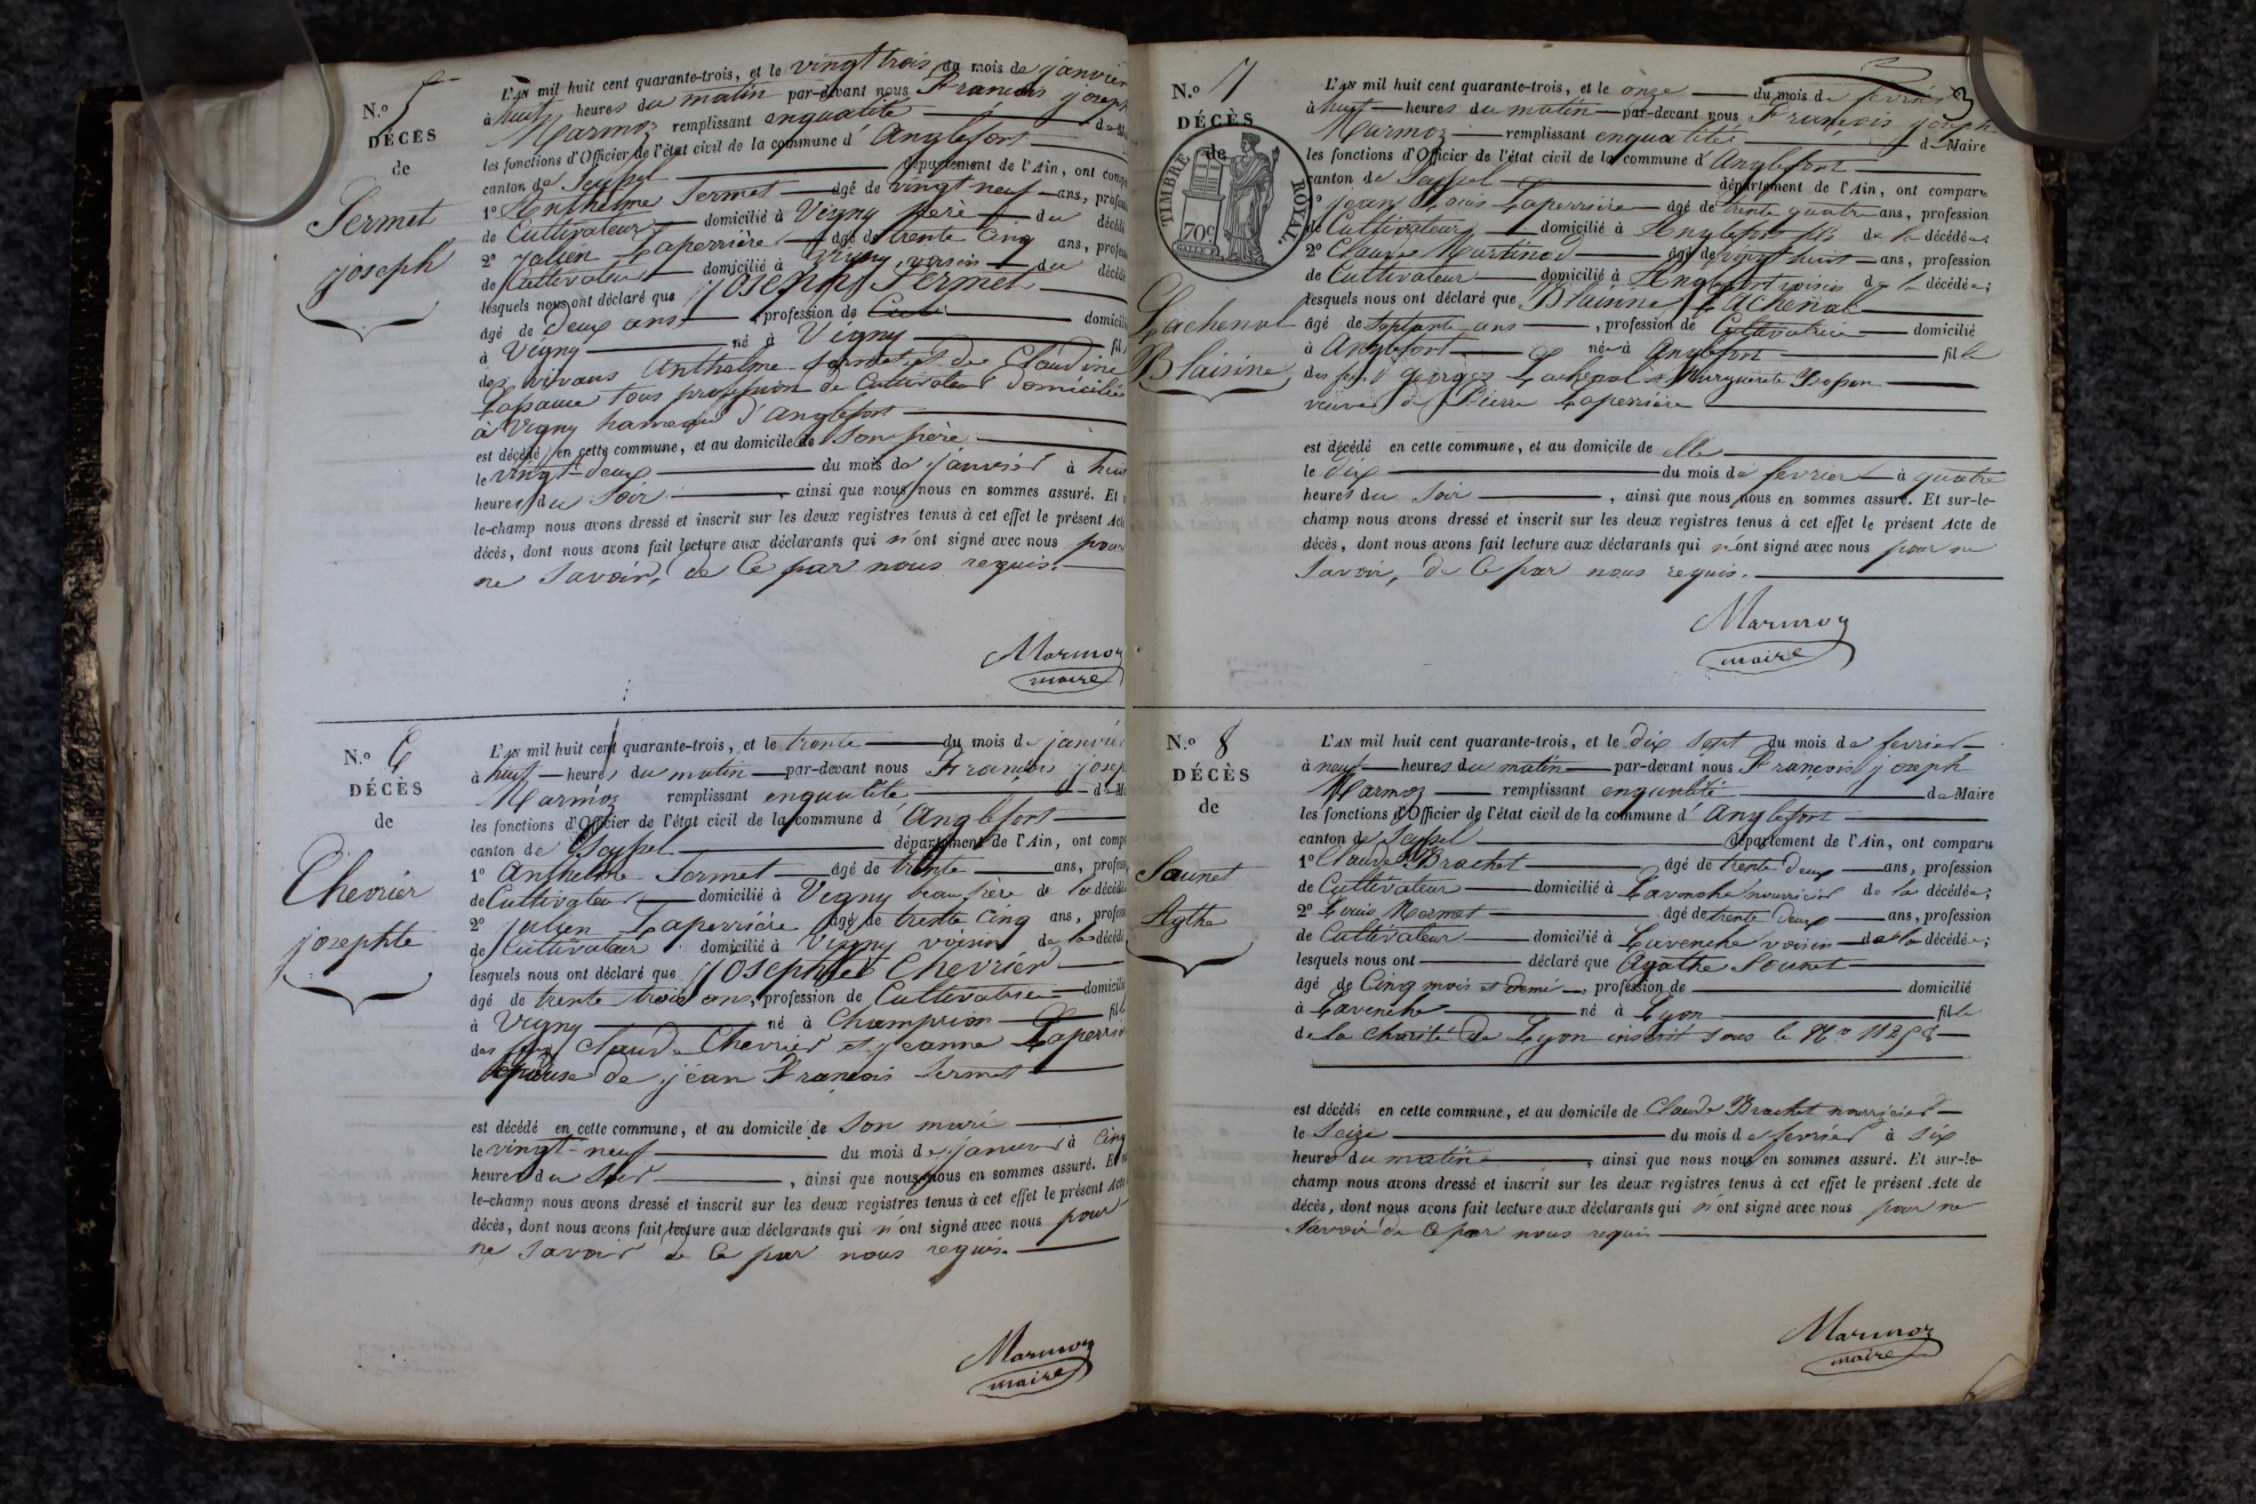 N.o 5
DÉCÈS
de
Sermet
joseph
L'AN mil huit cent quarante-trois, et le vingt trois du mois de janvier
à huit heures du matin par-devant nous François joseph
Marmoz remplissant en qualité de
les fonctions d'Officier de l'état civil de la commune d'Anglefort
canton de Seyssel département de l'Ain, ont
1o Anthelme Sermet âgé de vingt neuf ans,
de Cultivateur domicilié à Vigny père du
2o julien Laperrière âgé de trente Cinq ans,
de Cultivateur domicilié à Vigny, voisin du
lesquels nous ont déclaré que joseph Sermet
âgé de deux ans profession de
à Vigny né à Vigny
des vivans Anthelme Sermet et de Claudine
tous profession de Cultivateur domiciliés
à Vigny hameau d'anglefort
est décédé en cette commune, et au domicile de son père
le vingt-deux du mois de janvier à
heures du Soir, ainsi que nous nous en sommes assuré. Et
le-champ nous avons dressé et inscrit sur les deux registres tenus à cet effet le présent Acte
décès, dont nous avons fait lecture aux déclarants qui n'ont signé avec nous pour
ne Savoir, de Ce par nous requis.
Marmoz
maire
N.o 6
DÉCÈS
de
Chevrier
josephte
L'AN mil huit cent quarante-trois, et le trente du mois de janvier
à huit heures du matin par-devant nous François
Marmoz remplissant en qualité de
les fonctions d'Officier de l'état civil de la commune d'Anglefort
canton de Seyssel département de l'Ain, ont
1o Anthelme Sermet âgé de trente ans,
de Cultivateur domicilié à Vigny beau frère de la
2o julien Laperrière âgé de trente Cinq ans,
de Cultivateur domicilié à Vigny voisin de la
lesquels nous ont déclaré que josephte Chevrier
âgé de trente trois ans, profession de Cultivatrice
à Vigny né à Champrion
des feus Claude Chevrier et jeanne
épouse de jean François Sermet
est décédé en cette commune, et au domicile de son mari
le vingt-neuf du mois de janvier à Cinq
heures du Soir, ainsi que nous nous en sommes assuré. Et
le-champ nous avons dressé et inscrit sur les deux registres tenus à cet effet le présent Acte
décès, dont nous avons fait lecture aux déclarants qui n'ont signé avec nous pour
ne Savoir de Ce par nous requis.
Marmoz
maire
3
N.o 7
DÉCÈS
de
TIMBRE ROYAL.
70c
Lachenal
Blaisine
L'AN mil huit cent quarante-trois, et le onze du mois de fevrier
à huit heures du matin par-devant nous François joseph
Marmoz remplissant en qualité de Maire
les fonctions d'Officier de l'état civil de la commune d'Anglefort
canton de Seyssel département de l'Ain, ont comparu
1o jean Louis Laperrière âgé de trente quatre ans, profession
de Cultivateur domicilié à Anglefort fils de la décédée
2o Claude Martinod âgé de vingt huit ans, profession
de Cultivateur domicilié à Anglefort voisin de la décédée;
lesquels nous ont déclaré que Blaisine Lachenal
âgé de septante ans, profession de Cultivatrice domicilié
à Anglefort née à Anglefort fille
des feus georges Lachenal et Marguerite
veuve de Pierre Laperrière
est décédé en cette commune, et au domicile de elle
le dix du mois de fevrier à quatre
heures du Soir, ainsi que nous nous en sommes assuré. Et sur-le-
champ nous avons dressé et inscrit sur les deux registres tenus à cet effet le présent Acte de
décès, dont nous avons fait lecture aux déclarants qui n'ont signé avec nous pour ne
Savoir, de Ce par nous requis.
Marmoz
maire
N.o 8
DÉCÈS
de
Saunet
Agthe
L'AN mil huit cent quarante-trois, et le dix sept du mois de fevrier
à neuf heures du matin par-devant nous François joseph
Marmoz remplissant en qualité de Maire
les fonctions d'Officier de l'état civil de la commune d'Anglefort
canton de Seyssel département de l'Ain, ont comparu
1o Claude Brachet âgé de trente deux ans, profession
de Cultivateur domicilié à Lavanche nourricier de la décédée;
2o Louis Mermet âgé de trente deux ans, profession
de Cultivateur domicilié à Lavenche voisin de la décédée;
lesquels nous ont déclaré que Agathe Sounet
âgé de Cinq mois et demi, profession de domicilié
à Lavenche né à Lyon fille
de la Charité de Lyon inscrit sous le No
est décédé en cette commune, et au domicile de Claude Brachet nourricier
le Seize du mois de fevrier à six
heures du matin, ainsi que nous nous en sommes assuré. Et sur-le-
champ nous avons dressé et inscrit sur les deux registres tenus à cet effet le présent Acte de
décès, dont nous avons fait lecture aux déclarants qui n'ont signé avec nous pour ne
Savoir de Ce par nous requis
Marmoz
maire